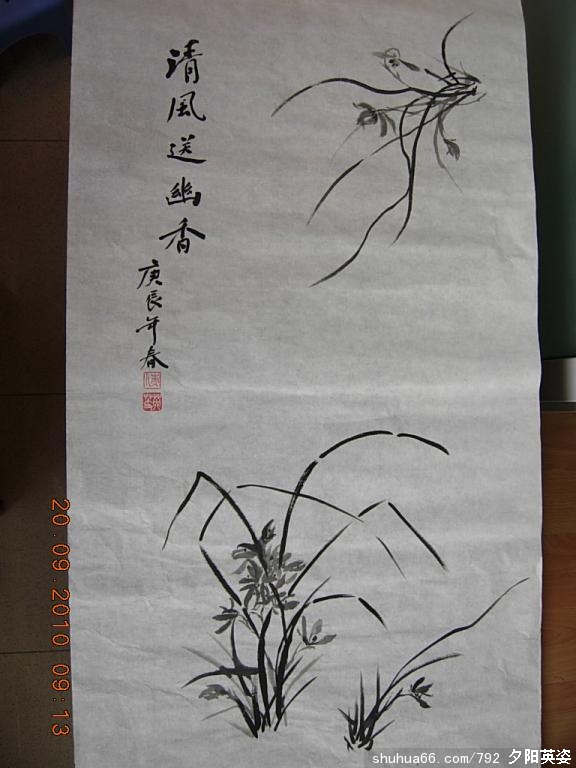 清風送幽香
庚辰年春
20.09.2010 09:13
shuhua66.com/792 夕阳英姿